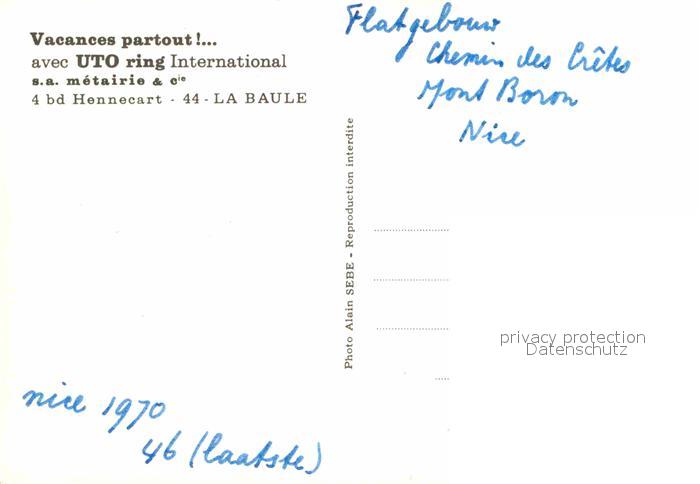 Vacances partout !...
avec UTO ring International
s.a. métairie & cie
4 bd Hennecart - 44 - LA BAULE
Flatgebouw
Chemin des Crêtes
Mont Boron
Nice
Photo Alain SEBE - Reproduction interdite
privacy protection
Datenschutz
nice 1970
46 (laatste)